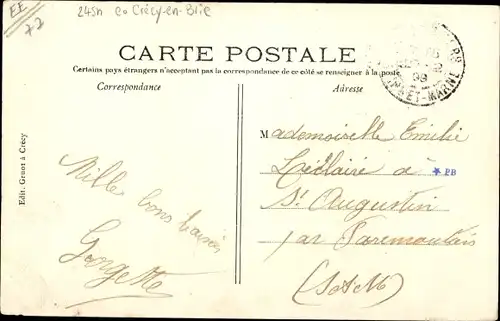 EE
77
245n eo Crécy-en-Brie
CARTE POSTALE
Certains pays étrangers n'acceptant pas la correspondance de ce côté se renseigner à la poste
Correspondance
Adresse
ET-MARNE
Edit. Genot à Crécy
Mille bons baisers
Georgette
Mademoiselle Emilie
Léclaire à
PB
St Augustin
par Faremoutiers
(S&M)